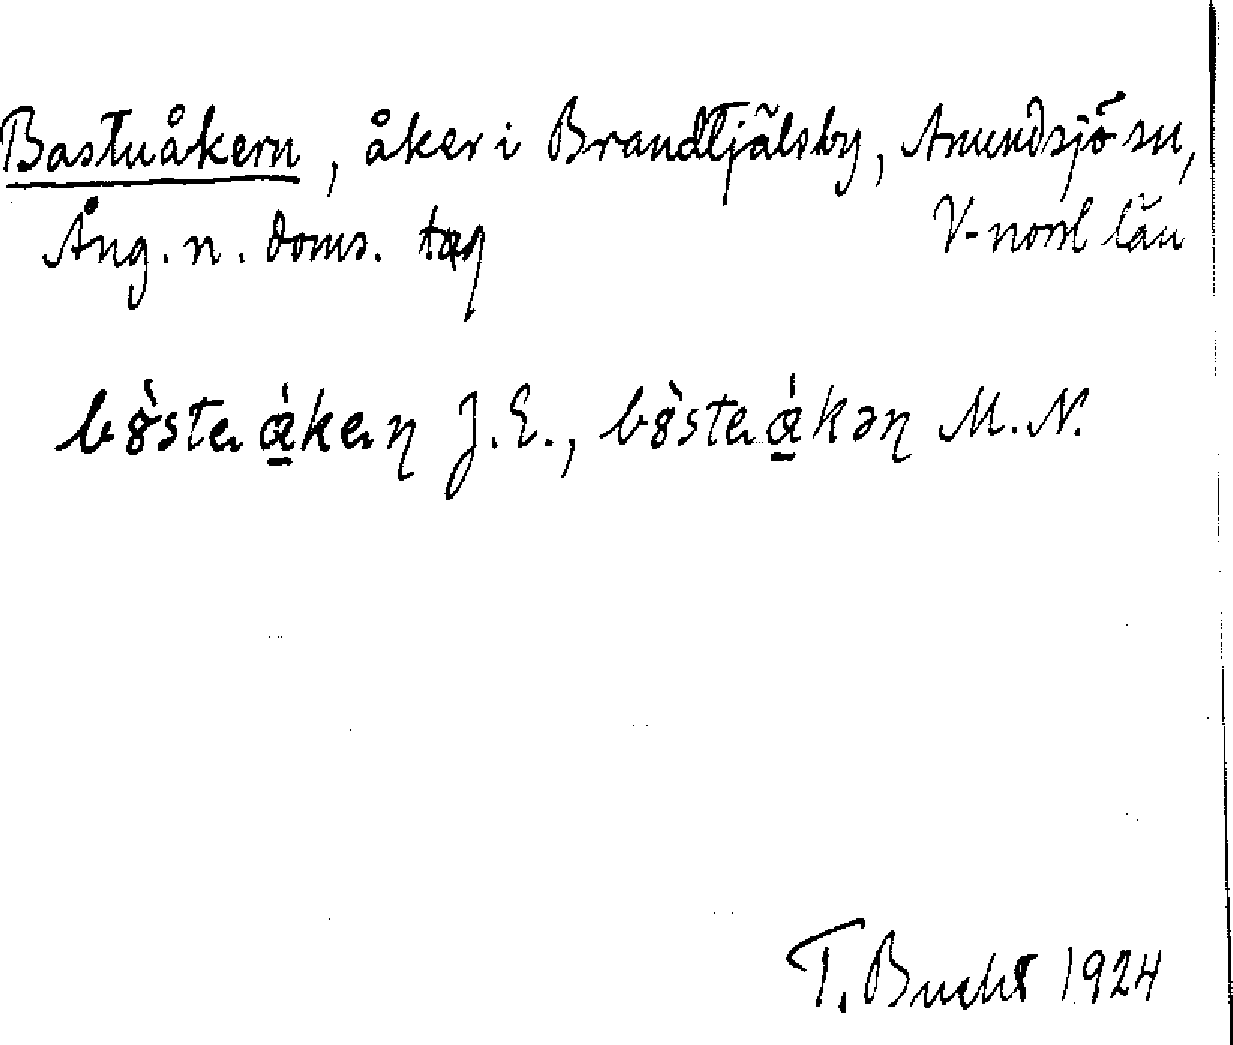 Bastuåkern, åker i Brandtjälsby, Anundsjö sn,
Ång. n. doms. tag V-norrl län
bȣ̀stea á̱kean J.E., bȣ̀stea á̱kəɳ M.N.
T. Bucht 1924